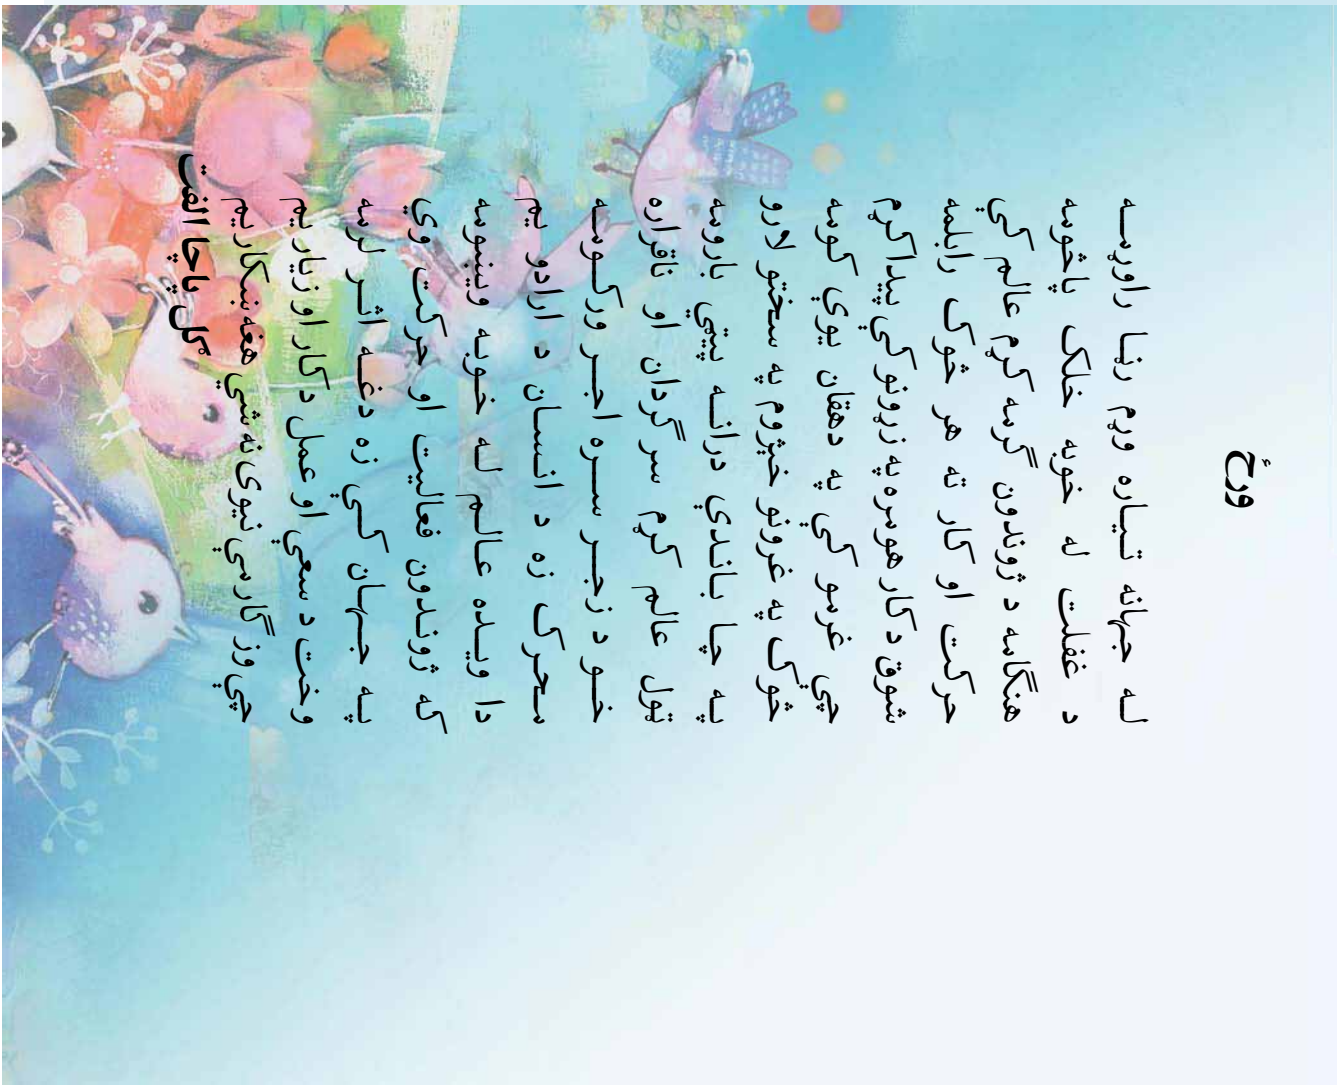 ورځ
له جهانه تياره وړم رڼا راوړمه
د غفلت له خوبه خلک پاڅومه
هنګامه د ژوندون ګرمه کړم عالم کې
حرکت او کار ته هر څوک رابلمه
شوق د کار هومره په زړونو کې پيدا کړم
چې غرمو کې په دهقان يوې کومه
څوک په غرونو خيژوم په سختو لارو
په چا باندې درانه پيټي باړومه
ټول عالم کړم سرګردان او ناقراره
خو د زجر سره اجر ورکومه
محرک زه د انسان د ارادو يم
دا ويده عالم له خوبه ويښومه
که ژوندون فعاليت او حرکت وي
په جهان کې زه دغه اثر لرمه
وخت د سعې او عمل د کار او زيار يم
چې وزګار مې نيوی نه شي هغه ښکار يم
ګل پاچا الفت